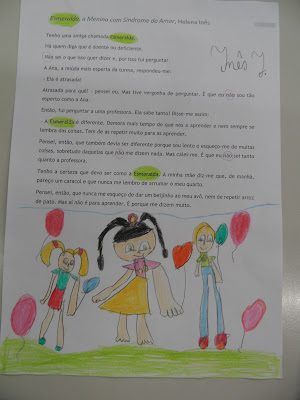 Esmeralda, a Menina com Síndrome do Amor, Helena Inês
Tenho uma amiga chamada Esmeralda.
Há quem diga que é doente ou deficiente.
Não sei o que isso quer dizer e, por isso fui perguntar
A Ana, a miúda mais esperta da turma, respondeu-me:
- Ela é atrasada!
Atrasada para quê? - pensei eu. Mas tive vergonha de perguntar. É que eu não sou tão
esperta como a Ana.
Então, fui perguntar a uma professora. Ela sabe tanto! Disse-me assim:
- A Esmeralda é diferente. Demora mais tempo do que nós a aprender e nem sempre se
lembra das coisas. Tem de as repetir muito para as aprender.
Pensei, então, que também devia ser diferente porque sou lento e esqueço-me de muitas
coisas, sobretudo daquelas que não me dizem nada. Mas calei-me. É que eu não sei tanto
quanto a professora.
Tenho a certeza que devia ser como a Esmeralda. A minha mãe diz-me que, de manhã,
pareço um caracol e que nunca me lembro de arrumar o meu quarto.
Pensei, então, que nunca me esqueço de dar um beijinho ao meu avô, nem de repetir arroz
de pato. Mas aí não é para aprender. É porque me dizem muito.
Inês